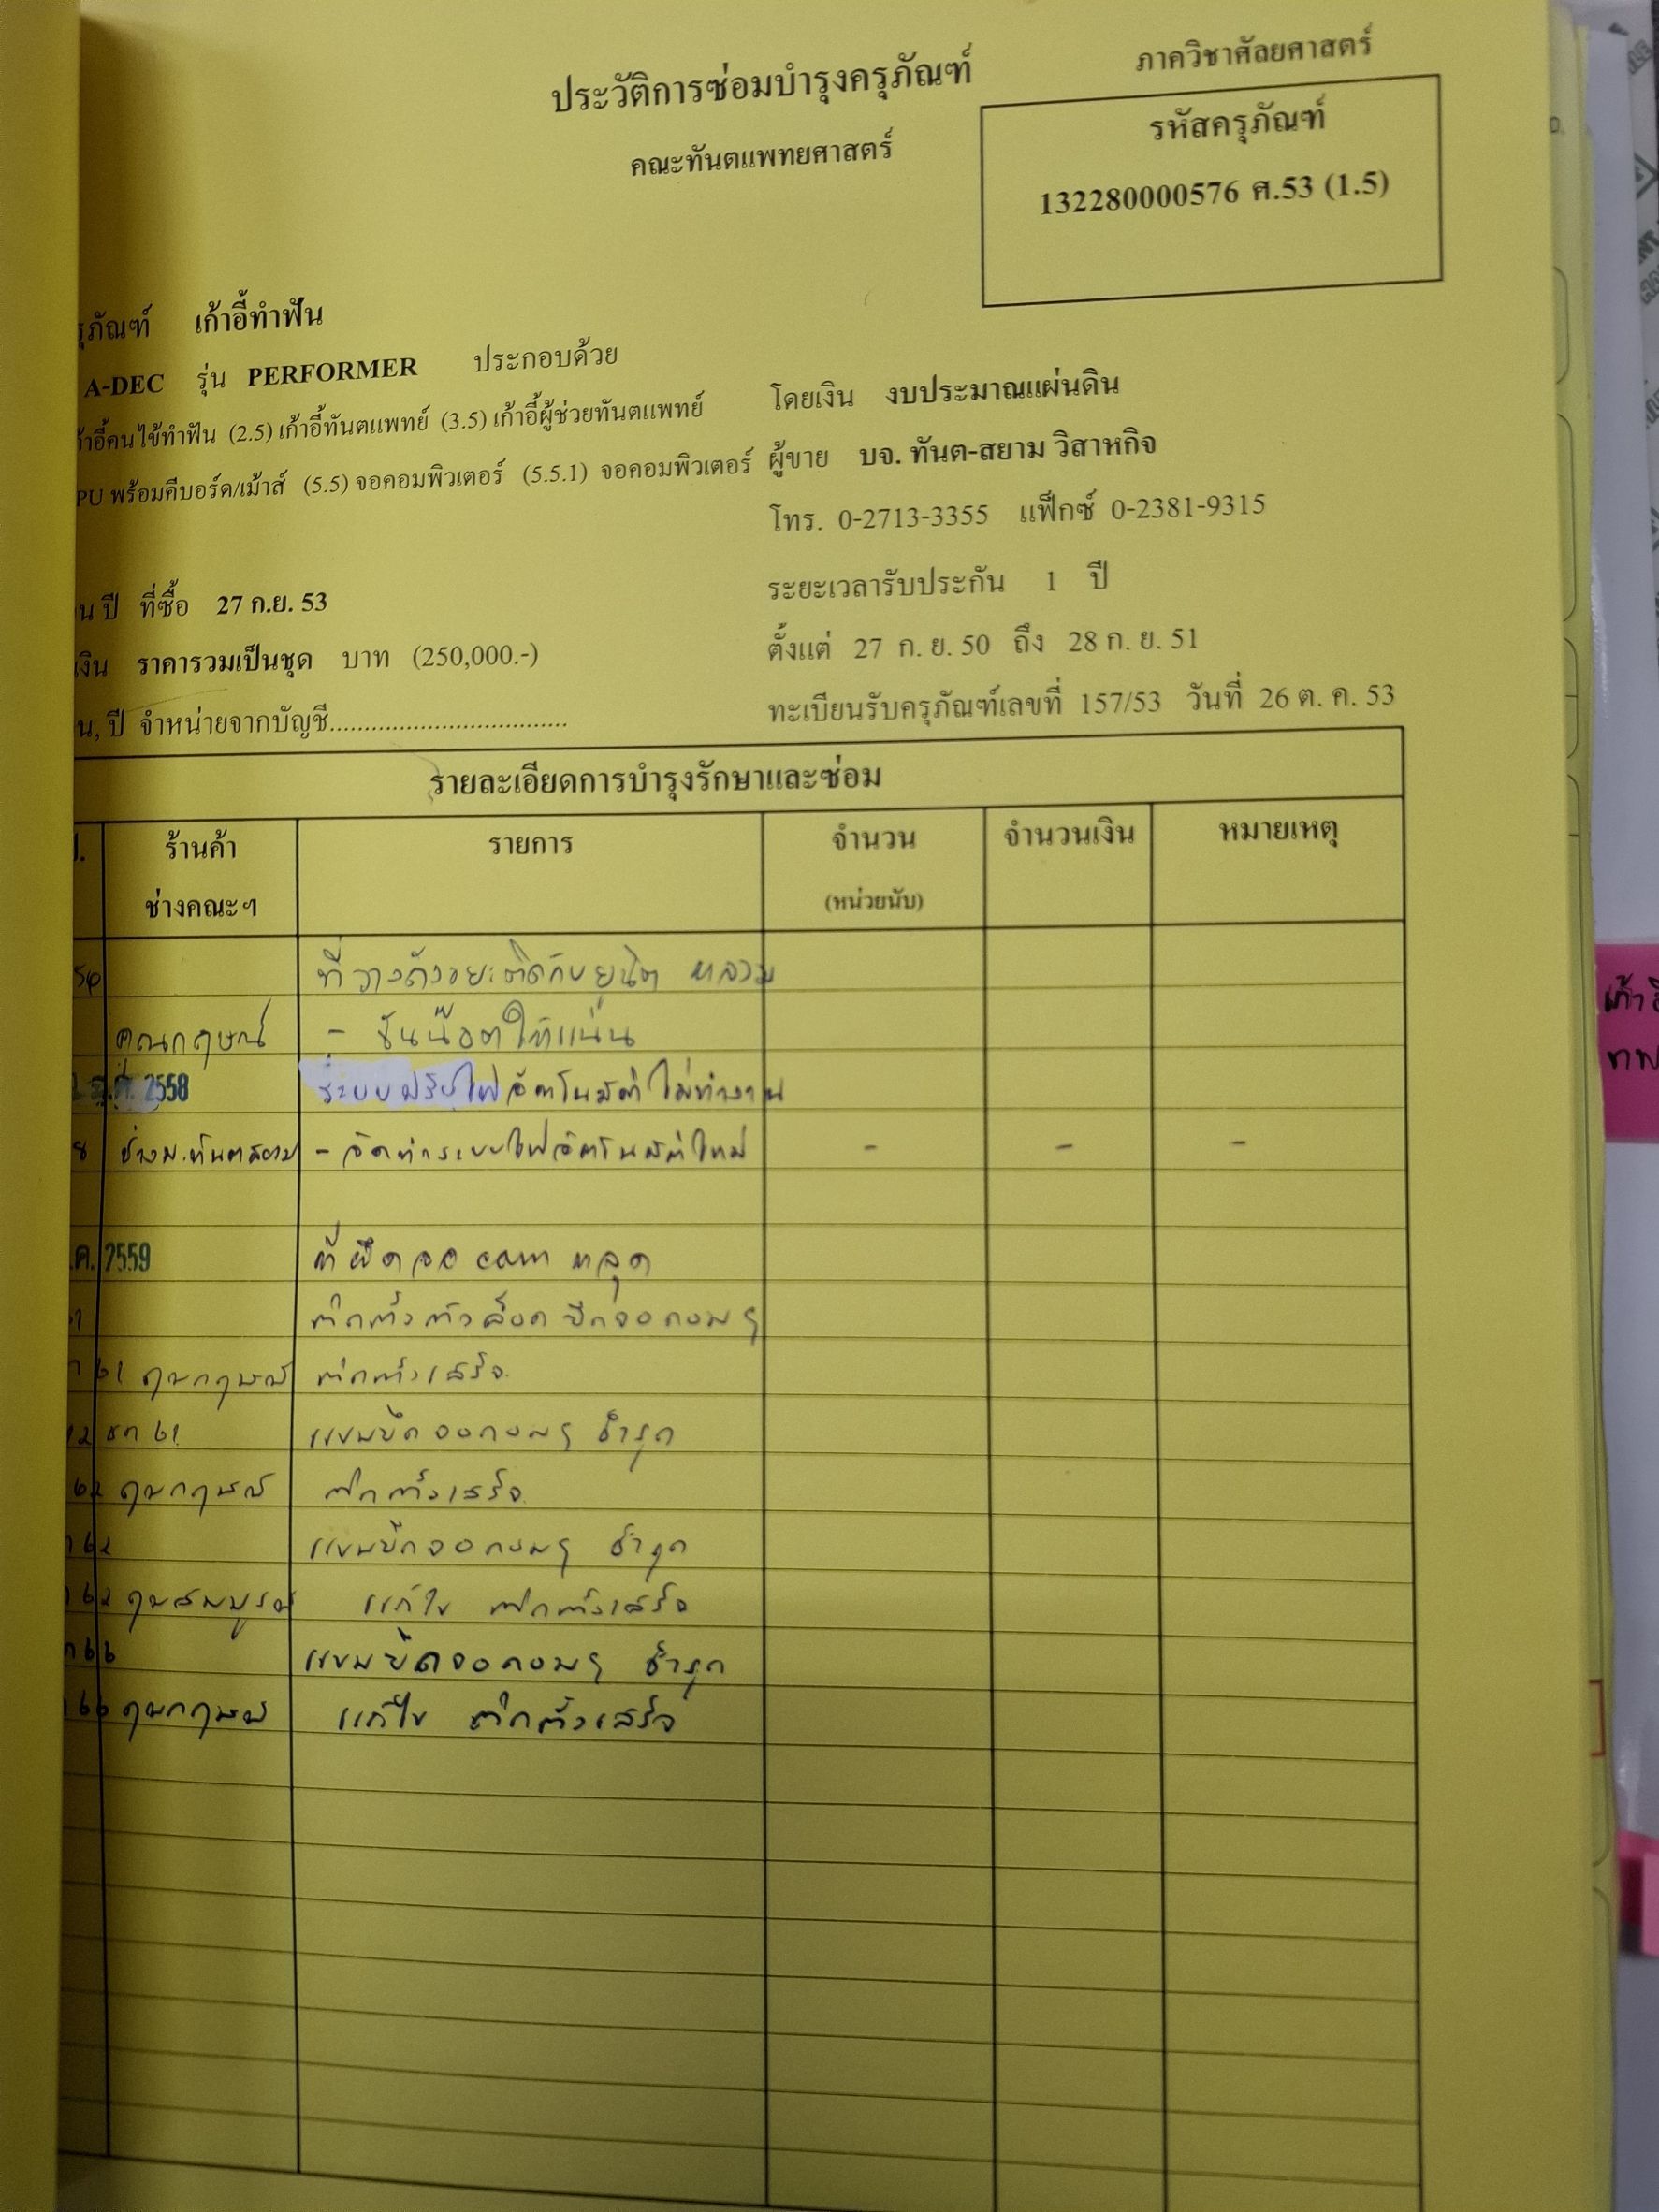 ภาควิชาศัลยศาสตร์
ประวัติการซ่อมบำรุงครุภัณฑ์
คณะทันตแพทยศาสตร์
รหัสครุภัณฑ์
132280000576 ศ.53 (1.5)
รุภัณฑ์ เก้าอี้ทำฟัน
A-DEC รุ่น PERFORMER ประกอบด้วย
ก้าอี้คนไข้ทำฟัน (2.5) เก้าอี้ทันตแพทย์ (3.5) เก้าอี้ผู้ช่วยทันตแพทย์
PU พร้อมคีบอร์ด/เม้าส์ (5.5) จอคอมพิวเตอร์ (5.5.1) จอคอมพิวเตอร์
โดยเงิน งบประมาณแผ่นดิน
ผู้ขาย บจ. ทันต-สยาม วิสาหกิจ
โทร. 0-2713-3355 แฟ็กซ์ 0-2381-9315
น ปี ที่ซื้อ 27 ก.ย. 53
ระยะเวลารับประกัน 1 ปี
เงิน ราคารวมเป็นชุด บาท (250,000.-)
ตั้งแต่ 27 ก. ย. 50 ถึง 28 ก. ย. 51
น, ปี จำหน่ายจากบัญชี..................................
ทะเบียนรับครุภัณฑ์เลขที่ 157/53 วันที่ 26 ต. ค. 53
รายละเอียดการบำรุงรักษาและซ่อม
ร้านค้า รายการ จำนวน จำนวนเงิน หมายเหตุ
ช่างคณะฯ (หน่วยนับ)
ที่วางถังขยะติดกับยูนิต หลวม
คุณกฤษณ์ - ขันน๊อตให้แน่น
2558 ระบบปรับไฟอัตโนมัติไม่ทำงาน
ช่างบ.ทันตสยาม - จัดทำระบบไฟอัตโนมัติใหม่ - - -
.ค. 2559 ที่ยึดจอ com หลุด
ติดตั้งตัวล็อค ยึดจอคอมฯ
61 คุณกฤษณ์ ติดตั้งเสร็จ
61 แขนยึดจอคอมฯ ชำรุด
62 คุณกฤษณ์ ติดตั้งเสร็จ
62 แขนยึดจอคอมฯ ชำรุด
62 คุณสมบูรณ์ แก้ไข ติดตั้งเสร็จ
66 แขนยึดจอคอมฯ ชำรุด
66 คุณกฤษณ์ แก้ไข ติดตั้งเสร็จ